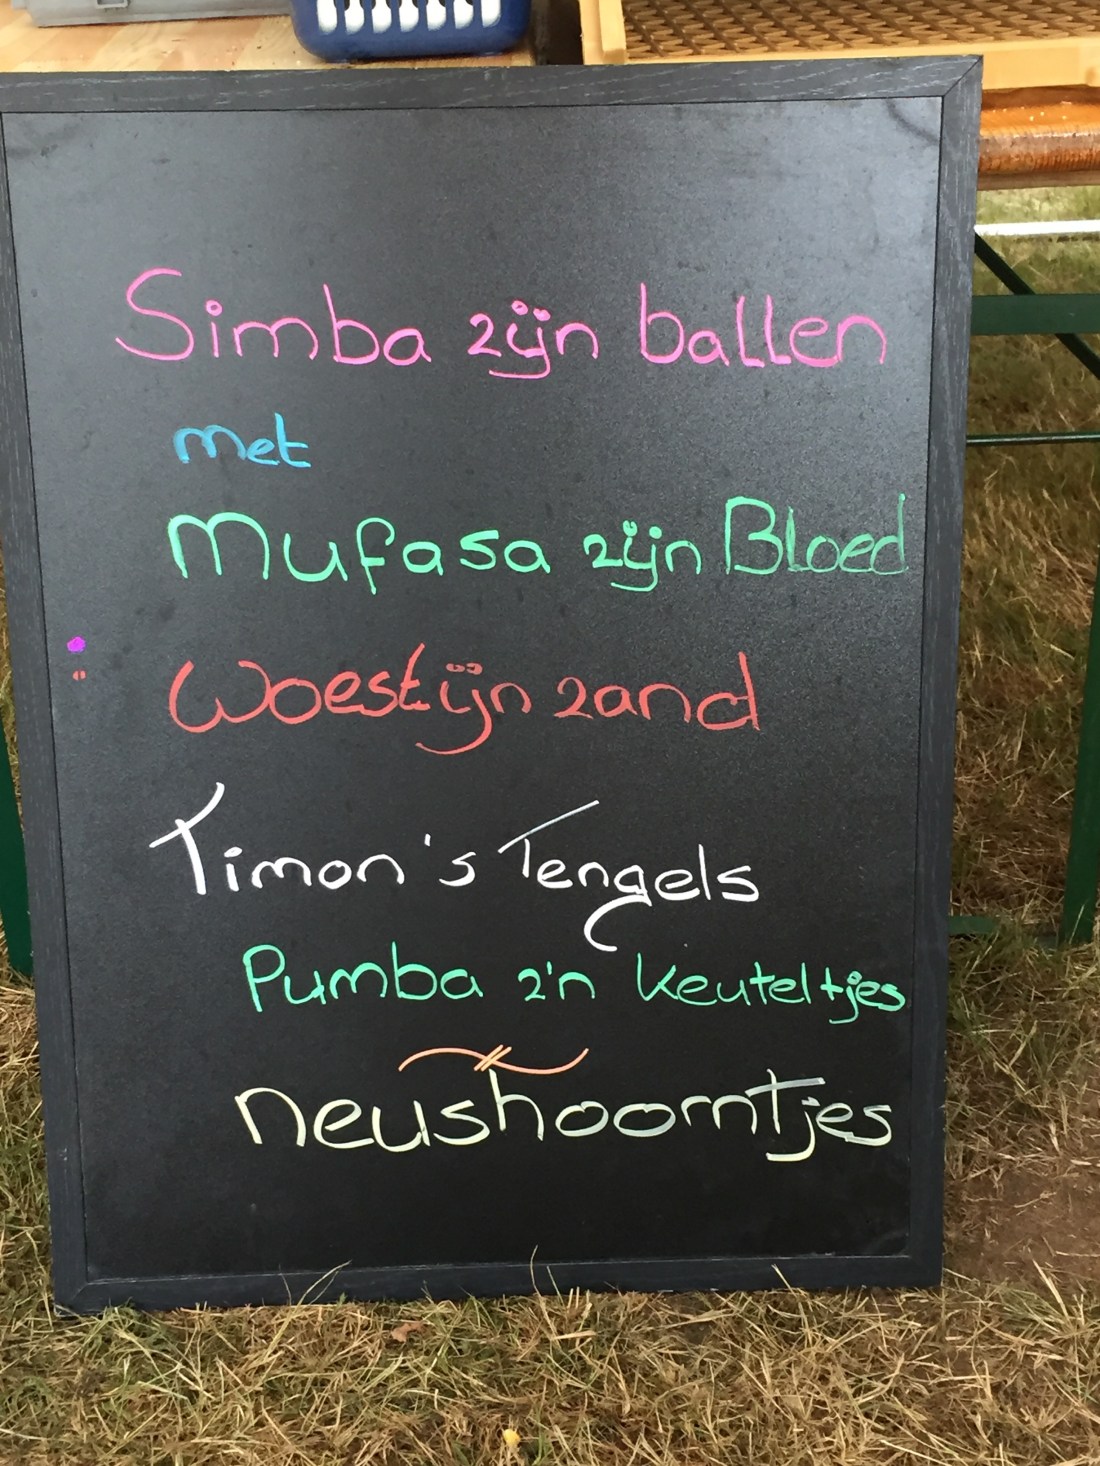 Simba zijn ballen
met
Mufasa zijn Bloed
Woestijn zand
Timon's Tengels
Pumba z'n keuteltjes
neushoorntjes